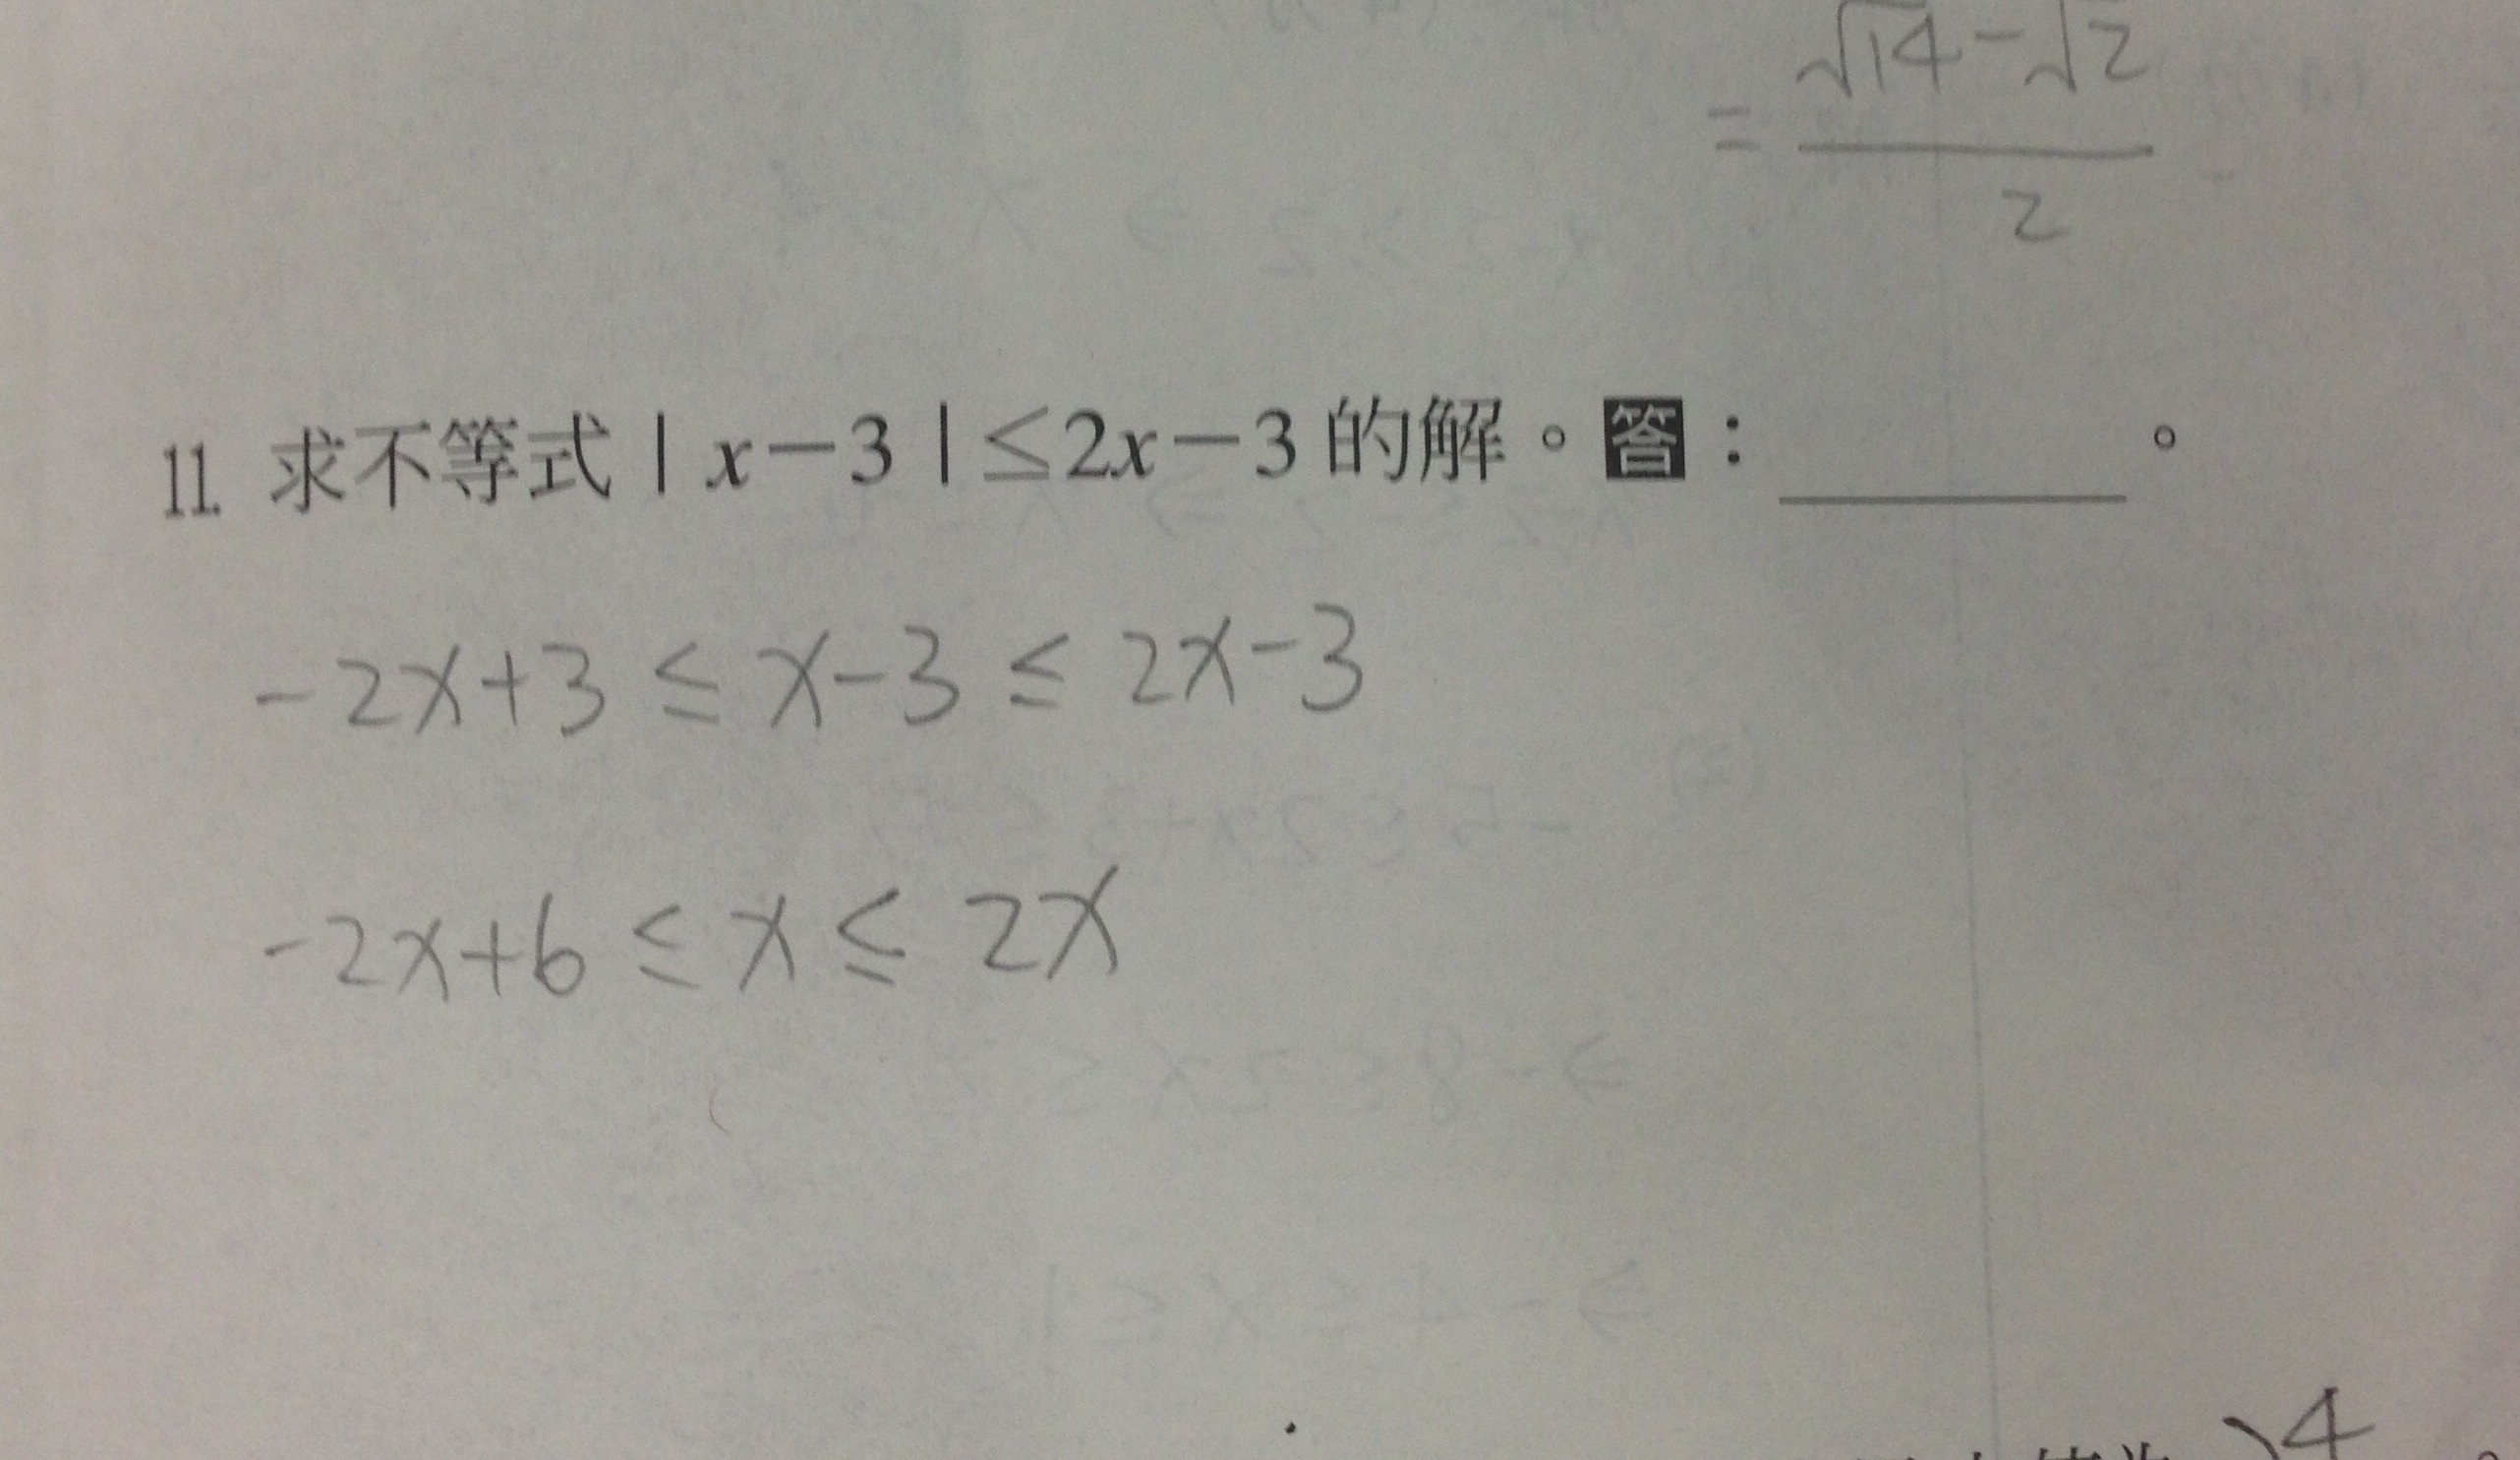 = √14 - √2 / 2
11. 求不等式 | x－3 | ≤2x－3 的解。答：______。
-2x+3 ≤ x-3 ≤ 2x-3
-2x+6 ≤ x ≤ 2x
4